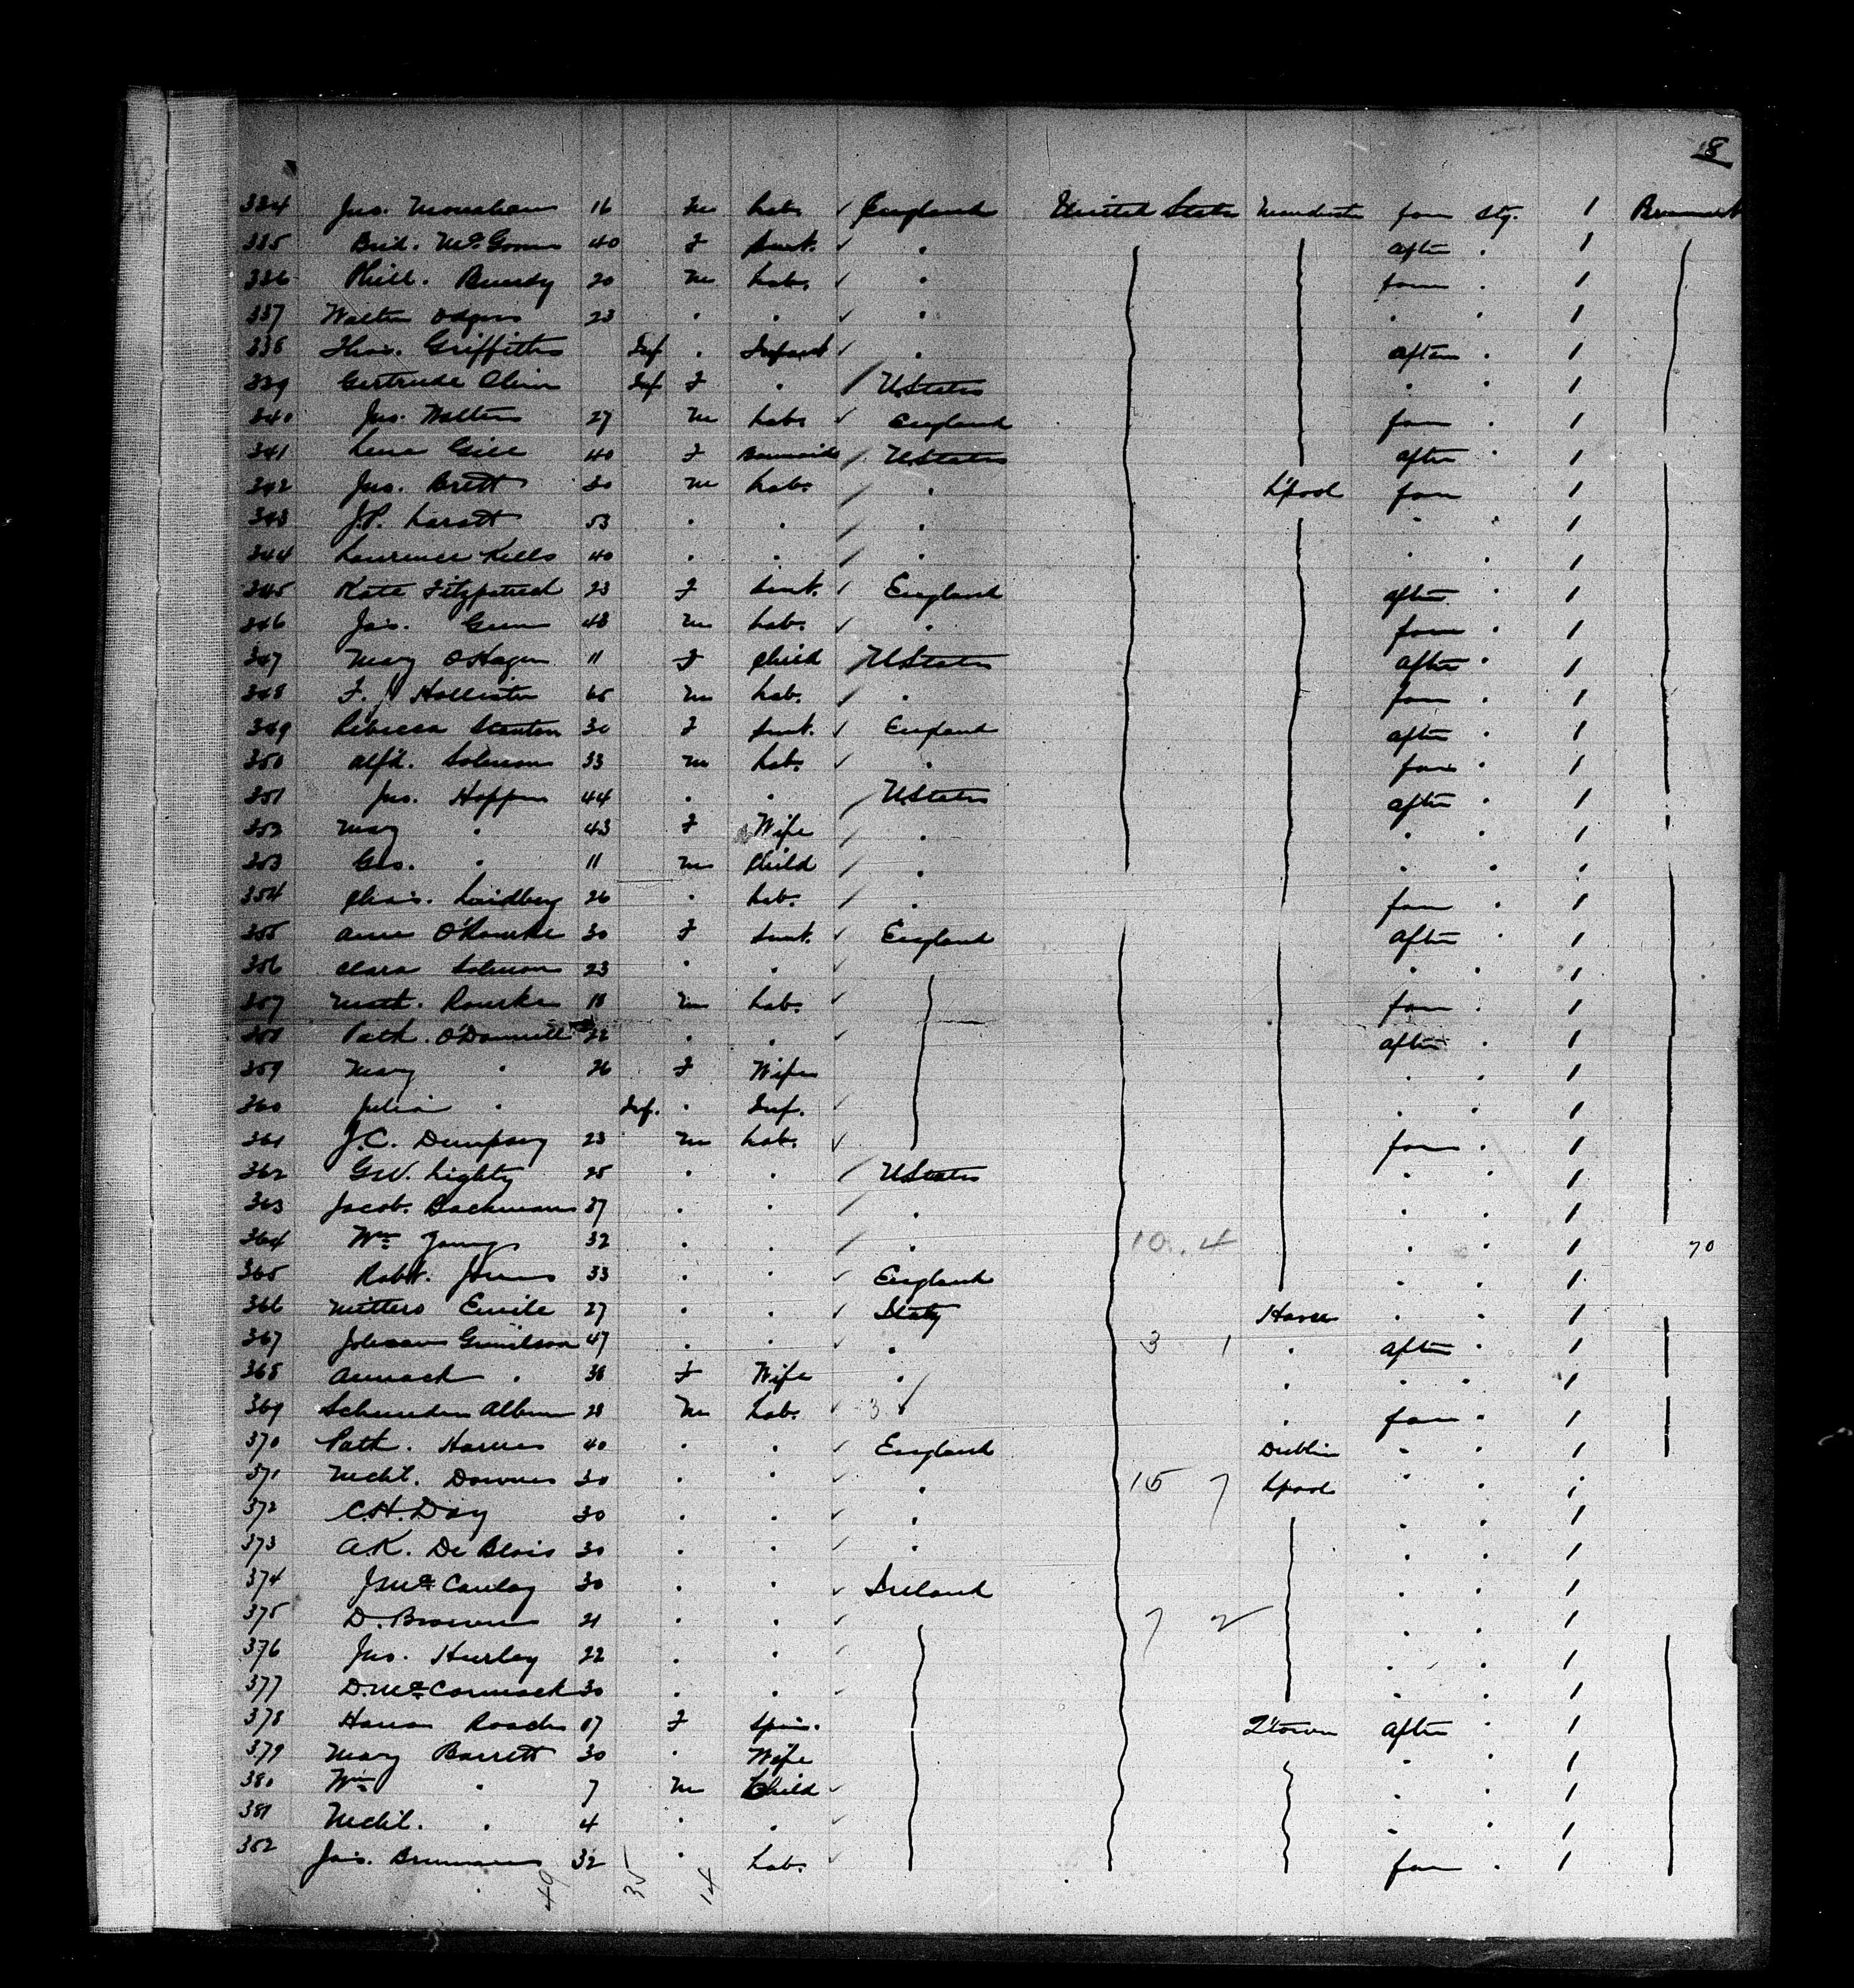 8
334 Jno. Monahan 16 m Lab. ✓ England United States Manchester for'd Stg. 1
335 Brid. McGovern 40 F Servt. ✓ " aft "  1
336 Phill. 20 m Lab. ✓ " for'd " 1
337 Walter Odgers 23 " " ✓ " " " 1
338 Thos. Griffiths Inf " Infant ✓ " aft " 1
339 Gertrude Inf F " / U States " " 1
340 Jno. Walters 27 m Lab. ✓ England " 1
341 Lena Gill 40 F / U States aft " 1
342 Jno. Brett 30 m Lab. / " L'pool 1
343 J.P. 53 " " / " " " 1
344 Laurence Kells 40 " " / " " " 1
345 Kate Fitzpatrick 23 F Servt. ✓ England aft " 1
346 Jas. 48 m Lab. ✓ " " 1
347 Mary O'Hagan 11 F Child / U States aft " 1
348 F. J. Hollister 65 m Lab. / " " 1
349 Rebecca Stanton 30 F Servt. ✓ England aft " 1
350 Alfd. Solomon 33 m Lab. ✓ " " 1
351 Jno. 44 " " / U States aft " 1
352 Mary " 43 F Wife / " " " 1
353 Geo. " 11 m Child / " " " 1
354 Chas. 26 " Lab. / " " 1
355 Anne O'Rourke 30 F Servt. ✓ England aft " 1
356 Clara Solomon 23 " " ✓ " " 1
357 Matt. Rourke 18 m Lab. ✓ " 1
358 Patk. O'Donnell 22 " " ✓ aft " 1
359 Mary " 26 F Wife " " 1
360 Julia " Inf. " Inf. ✓ " " 1
361 J.C. Dempsey 23 m Lab. ✓ " 1
362 G.W. Lighty 25 " " / U States " " 1
363 Jacob. Bachmann 37 " " / " " " 1
364 Wm Young 32 " " / " 10. 4 " " 1 70
365 Robt. 33 " " ✓ England " " 1
366 Emile 27 " " ✓ Italy Havre " " 1
367 47 " " " 3 1 " aft " 1
368 " 38 F Wife " " " " 1
369 28 m Lab. ✓ 3 ✓ " " 1
370 Patk. 40 " " ✓ England Dublin " " 1
371 Michl. Downes 30 " " ✓ " 15 7 L'pool " " 1
372 C.H. Day 30 " " ✓ " " " 1
373 A.K. De Blois 30 " " ✓ " " " 1
374 J. McCaulay 30 " " ✓ Ireland " " 1
375 D. Brown 21 " " ✓ 7 2 " " 1
376 Jno. Hurley 22 " " ✓ " " 1
377 D. McCormack 30 " " ✓ " " 1
378 Roach 17 F Spin. Q'town aft " 1
379 Mary Barrett 30 " Wife " " 1
380 Wm " 7 m Child ✓ " " 1
381 Michl. " 4 " " ✓ " " 1
382 Jas. 32 " Lab. ✓ " 1
49 35 14